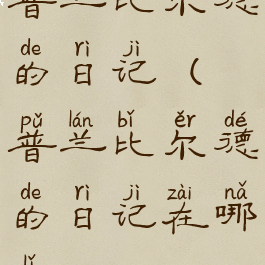 普兰比尔德
de rì jì
的日记（
pǔ lán bǐ ěr dé
普兰比尔德
de rì jì zài nǎ
的日记在哪
lǐ